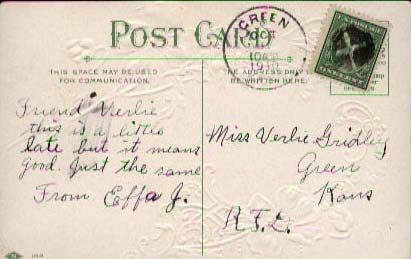 POST CARD
GREEN
OCT
THIS SPACE MAY BE USED
FOR COMMUNICATION.
THE ADDRESS ONLY
BE WRITTEN HERE.
Friend Verlie
this is a little
late but it means
good. Just the same
From Effa J.
Miss Verlie Gridley
Green
Kans
R.F.D.